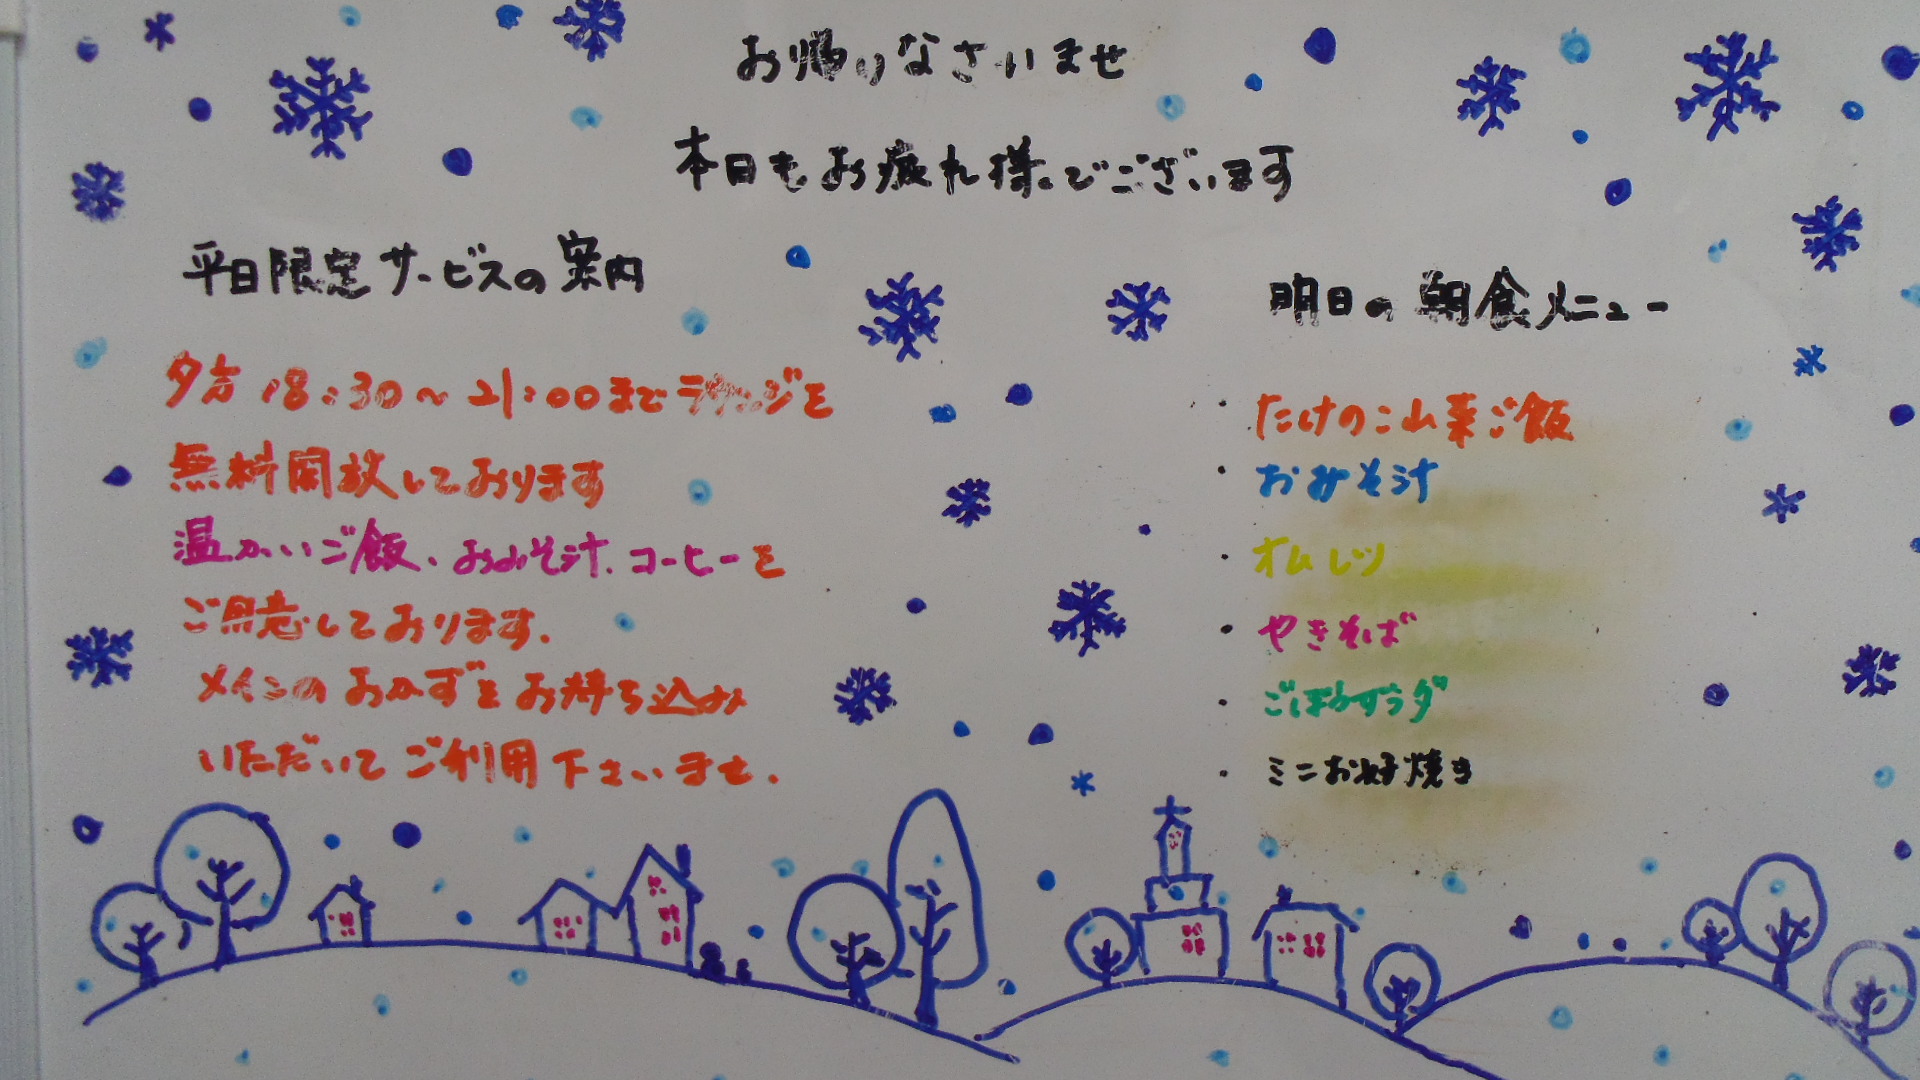 お帰りなさいませ
本日もお疲れ様でございます
平日限定サービスの案内
夕方18:30〜21:00までラウンジを
無料開放しております
温かいご飯、おみそ汁、コーヒーを
ご用意しております.
メインのおかずをお持ち込み
いただいてご利用下さいませ.
明日の朝食メニュー
・たけのこ山菜ご飯
・おみそ汁
・オムレツ
・やきそば
・ごぼうサラダ
・ミニお好焼き